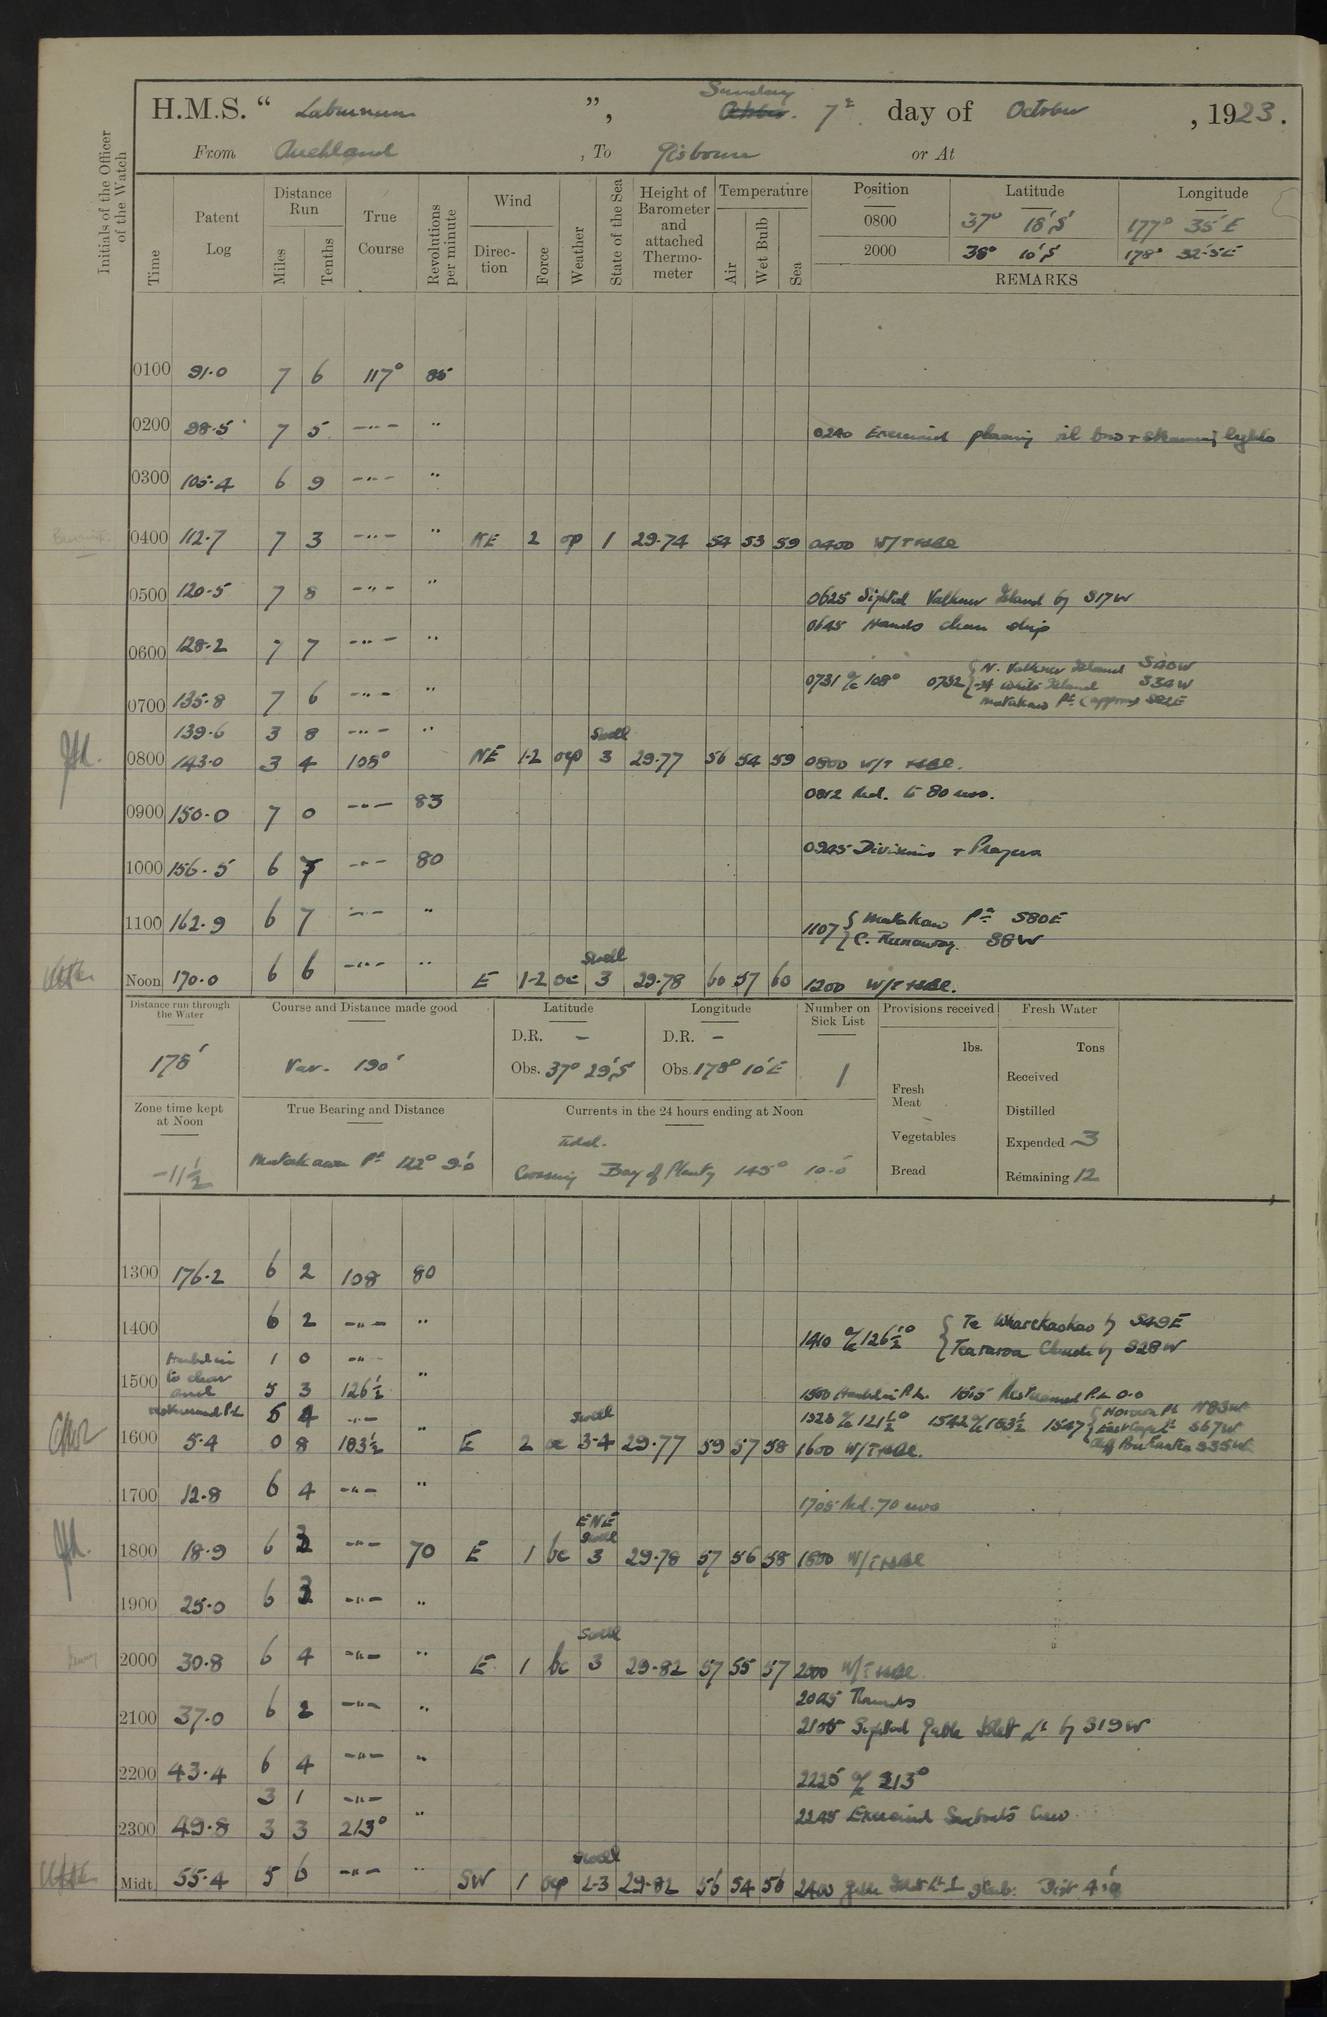 Sunday
H.M.S. “ Laburnum ”, 7th day of October , 1923.
From Auckland , To Gisborne or At
Initials of the Officer of the Watch
Time
Patent Log
Distance Run
Miles
Tenths
True Course
Revolutions per minute
Wind
Direction
Force
Weather
State of the Sea
Height of Barometer and attached Thermometer
Temperature
Air
Wet Bulb
Sea
Position Latitude Longitude
0800 37° 18'S 177° 35'E
2000 38° 10'S 178° 32'.5E
REMARKS
0100 91.0 7 6 117° 85
0200 98.5 7 5 -"- "
0240 Exercised placing oil bow & steaming lights
0300 105.4 6 9 -"- "
0400 112.7 7 3 -"- " NE 2 op 1 29.74 54 53 59 0400 W/T
0500 120.5 7 8 -"- "
0625 Sighted Valkner Island by S17W
0645 Hands clean ship
0600 128.2 7 7 -"- "
0731 a/c 108° 0732 { N. Valkner Island S40W
White Island S34W
Matakawa Pt. (approx) S82E
0700 135.8 7 6 -"- "
139.6 3 8 -"- "
Swell
0800 143.0 3 4 108° NE 1-2 ocp 3 29.77 56 54 59 0800 W/T
0812 Red. to 80 revs.
0900 150.0 7 0 -"- 83
0945 Divisions & Prayers
1000 156.5 6 7 -"- 80
1100 162.9 6 7 -"- "
1107 { Matakawa Pt. S80E
C. Runaway. S8W
Swell
Noon 170.0 6 6 -"- " E 1-2 oc 3 29.78 60 57 60 1200 W/T
Distance run through the Water
178'
Course and Distance made good
Var. 190'
Latitude
D.R. -
Obs. 37° 29'S
Longitude
D.R. -
Obs. 178° 10'E
Number on Sick List
1
Provisions received
lbs.
Fresh Meat
Vegetables
Bread
Fresh Water
Tons
Received
Distilled
Expended 3
Remaining 12
Zone time kept at Noon
-11½
True Bearing and Distance
Matakawa Pt 122° 9'.0
Currents in the 24 hours ending at Noon
Tidal.
Crossing Bay of Plenty 145° 10'.0
1300 176.2 6 2 108 80
1400 6 2 -"- "
1410 a/c 126½° { Te Wharekaokao by S49E
Teararoa Church by S28W
Hauled in 1 0 -"-
1500 to clear and 5 3 126½ "
1500 Hauled in P.L. 1515 Restreamed P.L. 0.0
restreamed P.L. 5 4 -"- "
1528 a/c 121½° 1542 a/c 183½ 1547 { Horoera Pt N83W
East Cape Lt. S67W
S35W
Swell
1600 5.4 0 8 183½ E 2 oc 3-4 29.77 59 57 58 1600 W/T
1700 12.8 6 4 -"- "
1705 Red. 70 revs
ENE
Swell
1800 18.9 6 2 -"- 70 E 1 bc 3 29.78 57 56 58 1800 W/T
1900 25.0 6 2 -"- "
Swell
2000 30.8 6 4 -"- " E 1 bc 3 29.82 57 55 57 2000 W/T
2045 Rounds
2100 37.0 6 2 -"- "
2105 Sighted Gable Islet Lt by S19W
2200 43.4 6 4 -"- "
2225 a/c 213°
3 1 -"-
2245 Exercised Seaboat's Crew
2300 49.8 3 3 213° "
Swell
Midt. 55.4 5 6 -"- " SW 1 ocp 2-3 29.82 56 54 56 2400 Gable Islet Lt Dist